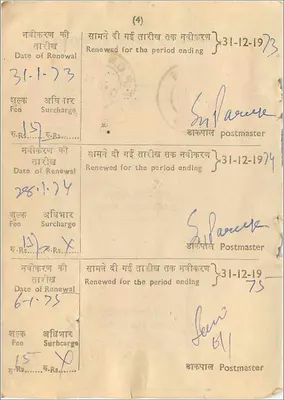 (4)
नवीकरण की तारीख
Date of Renewal
31.1.73
सामने दी गई तारीख तक नवीकरण
Renewed for the period ending
31-12-1973
शुल्क अधिभार
Fee Surcharge
रु.Rs. 15/ रु.Rs.
डाकपाल Postmaster
नवीकरण की तारीख
Date of Renewal
28.1.74
सामने दी गई तारीख तक नवीकरण
Renewed for the period ending
31-12-1974
शुल्क अधिभार
Fee Surcharge
रु.Rs. 15/ रु.Rs. X
डाकपाल Postmaster
नवीकरण की तारीख
Date of Renewal
6-1-75
सामने दी गई तारीख तक नवीकरण
Renewed for the period ending
31-12-19
75
शुल्क अधिभार
Fee Surcharge
रु.Rs. 15 रु.Rs. X
डाकपाल Postmaster